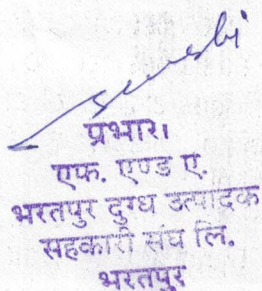 प्रभार।
एफ. एण्ड ए.
भरतपुर दुग्ध उत्पादक
सहकारी संघ लि.
भरतपुर